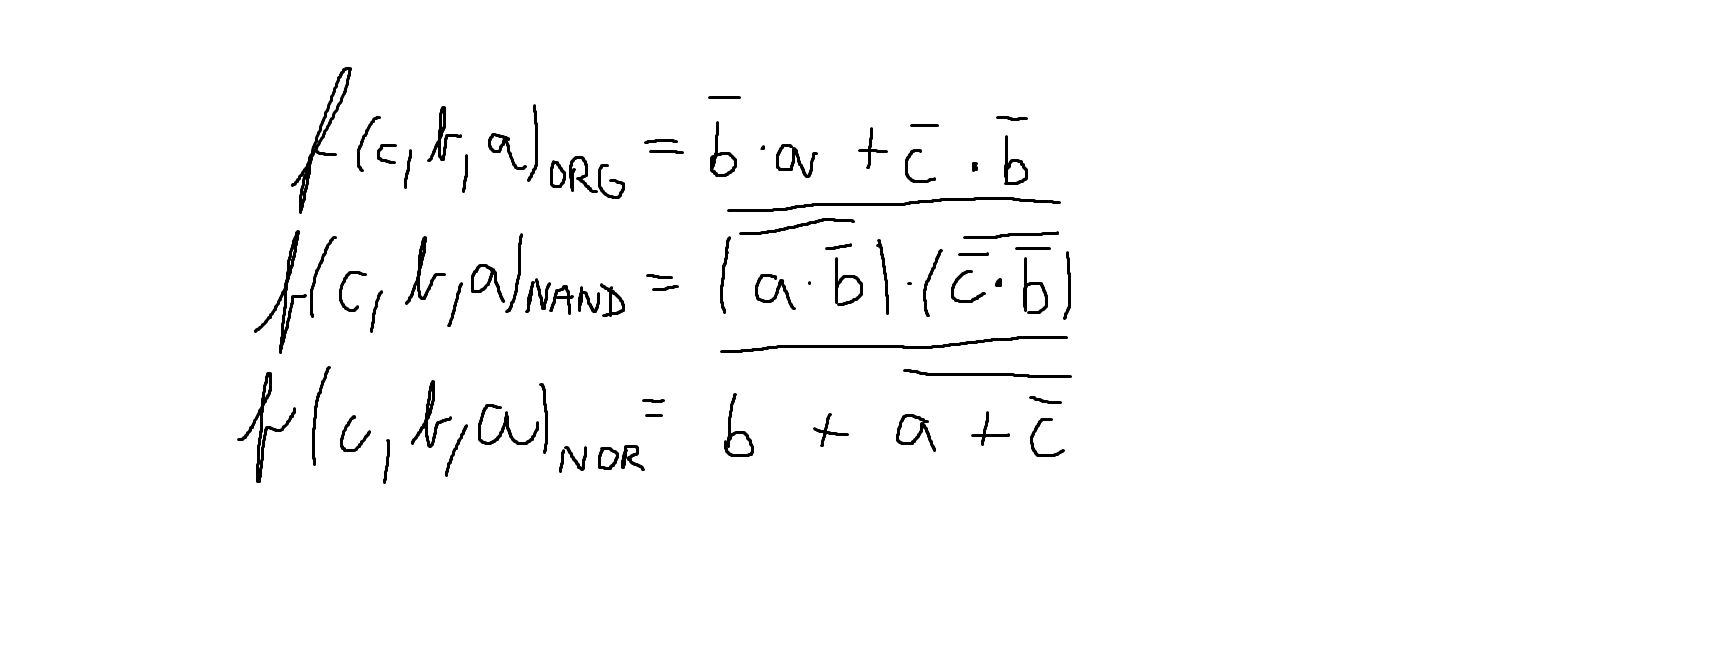 f(c, b, a)ORG = b̅ · a + c̅ · b̅
f(c, b, a)NAND = \overline{\overline{(a · b̅)} · \overline{(c̅ · b̅)}}
f(c, b, a)NOR = \overline{b + \overline{a + c̅}}